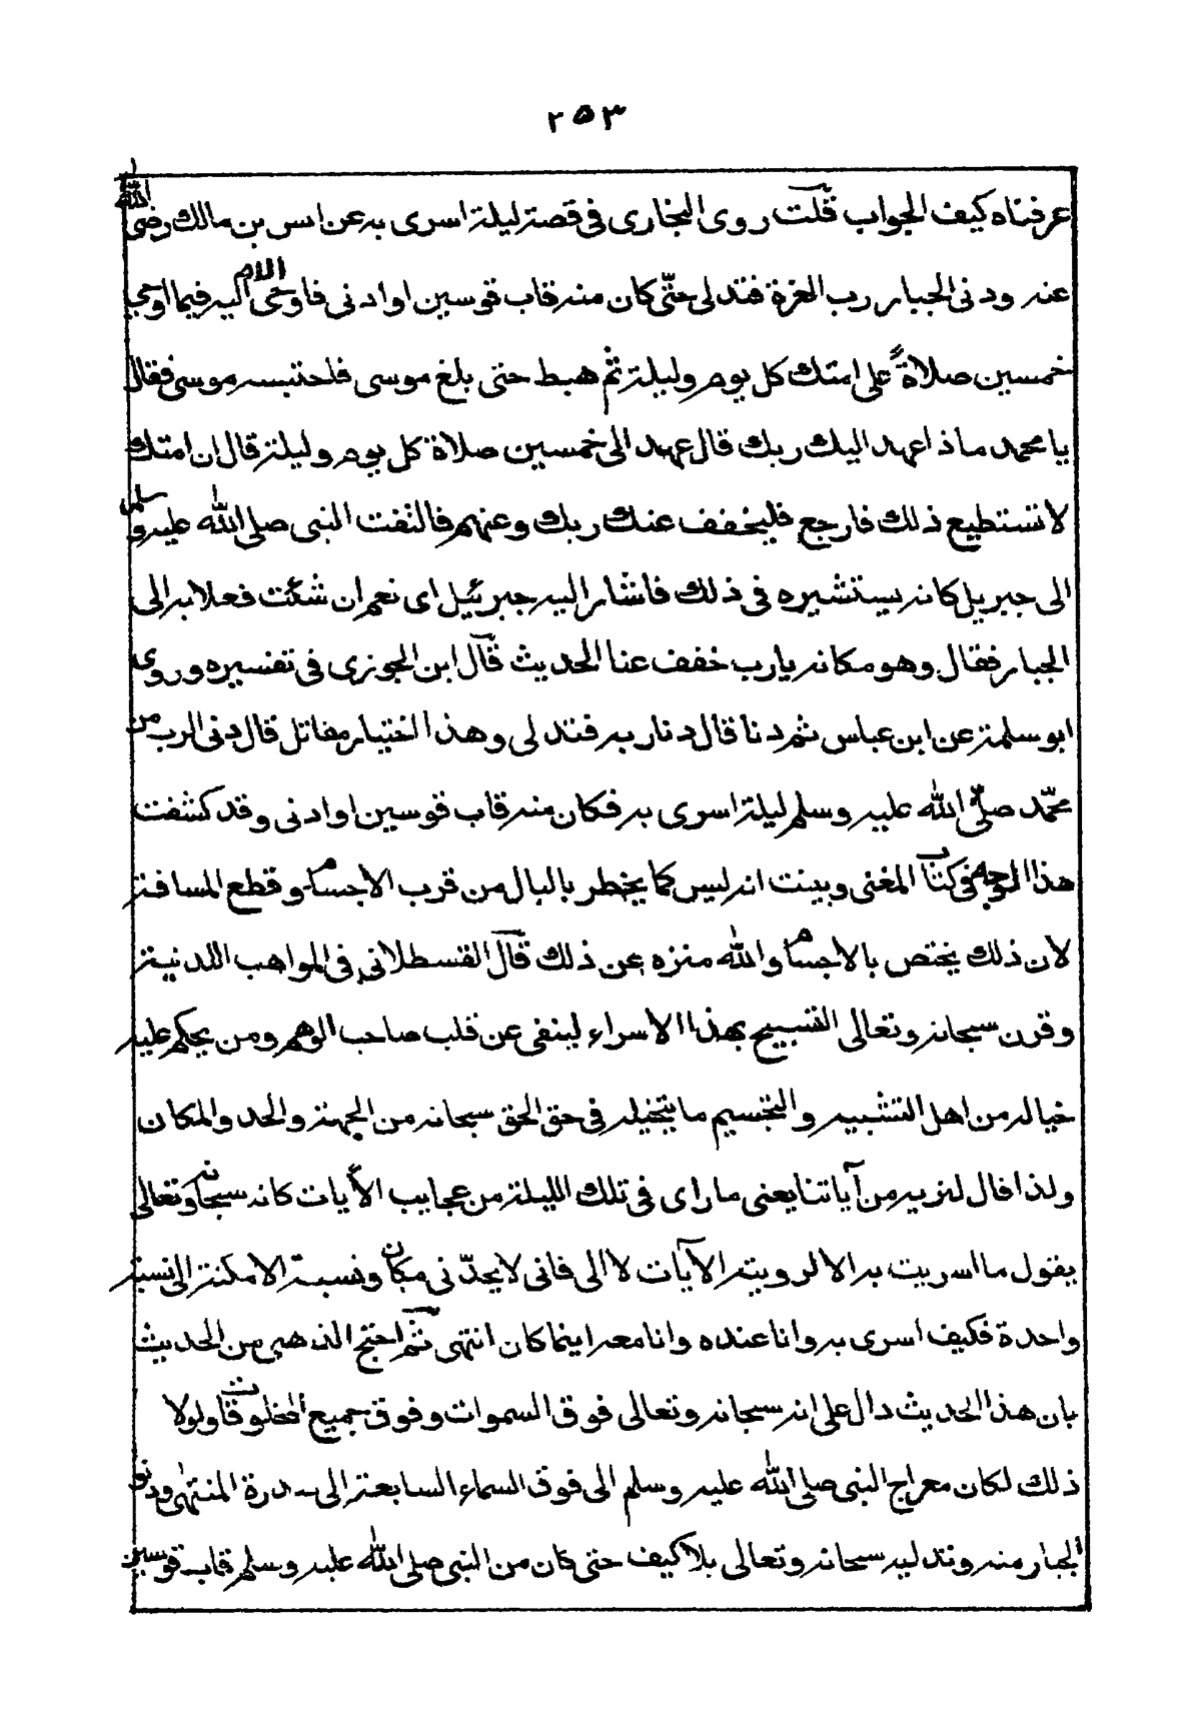 ٢٥٣
عرفناه كيف الجواب قلت روى البخارى فى قصة ليلة اسرى به عن انس بن مالك رضى الله
عنه ودنى الجبار رب العزة فتدلى حتّى كان منه قاب قوسين او ادنى فاوحى اليه فيما اوحى
خمسين صلاةً على امتك كل يوم وليلة ثم هبط حتى بلغ موسى فاحتبسه موسى فقال
يا محمد ماذا عهد اليك ربك قال عهد الى خمسين صلاة كل يوم وليلة قال ان امتك
لا تستطيع ذلك فارجع فليخفف عنك ربك وعنهم فالتفت النبى صلى الله عليه وسلم
الى جبريل كانه يستشيره فى ذلك فاشار اليه جبرئيل اى نعم ان شئت فعلا به الى
الجبار فقال وهو مكانه يارب خفف عنا الحديث قال ابن الجوزى فى تفسيره وروى
ابو سلمة عن ابن عباس ثم دنا قال دنا ربه فتدلى وهذا اختيار مقاتل قال دنى الرب من
محمّد صلّى الله عليه وسلم ليلة اسرى به فكان منه قاب قوسين او ادنى وقد كشفت
هذا الوجه فى كتاب المغنى وبينت انه ليس كما يخطر بالبال من قرب الاجسام وقطع المسافة
لان ذلك يختص بالاجسام والله منزه عن ذلك قال القسطلانى فى المواهب اللدنية
وقرن سبحانه وتعالى التسبيح بهذا الاسراء لينفى عن قلب صاحب الوهم ومن يحكم عليه
خياله من اهل التشبيه والتجسيم ما يتخيله فى حق الحق سبحانه من الجهة والحد والمكان
ولذا قال لنريه من آياتنا يعنى ما راى فى تلك الليلة من عجايب الآيات كانه سبحانه وتعالى
يقول ما اسريت به الا لرويته الآيات لا الى فانى لا يحدّنى مكان ونسبة الامكنة الى نسبة
واحدة فكيف اسرى به وانا عنده وانا معه اينما كان انتهى ثم احتج الذهبى من الحديث
بان هذا الحديث دال على انه سبحانه وتعالى فوق السموات وفوق جميع المخلوقات ولولا
ذلك لكان معراج النبى صلى الله عليه وسلم الى فوق السماء السابعة الى سدرة المنتهى ودنو
الجبار منه وتدليه سبحانه وتعالى بلا كيف حتى كان من النبى صلى الله عليه وسلم قاب قوسين